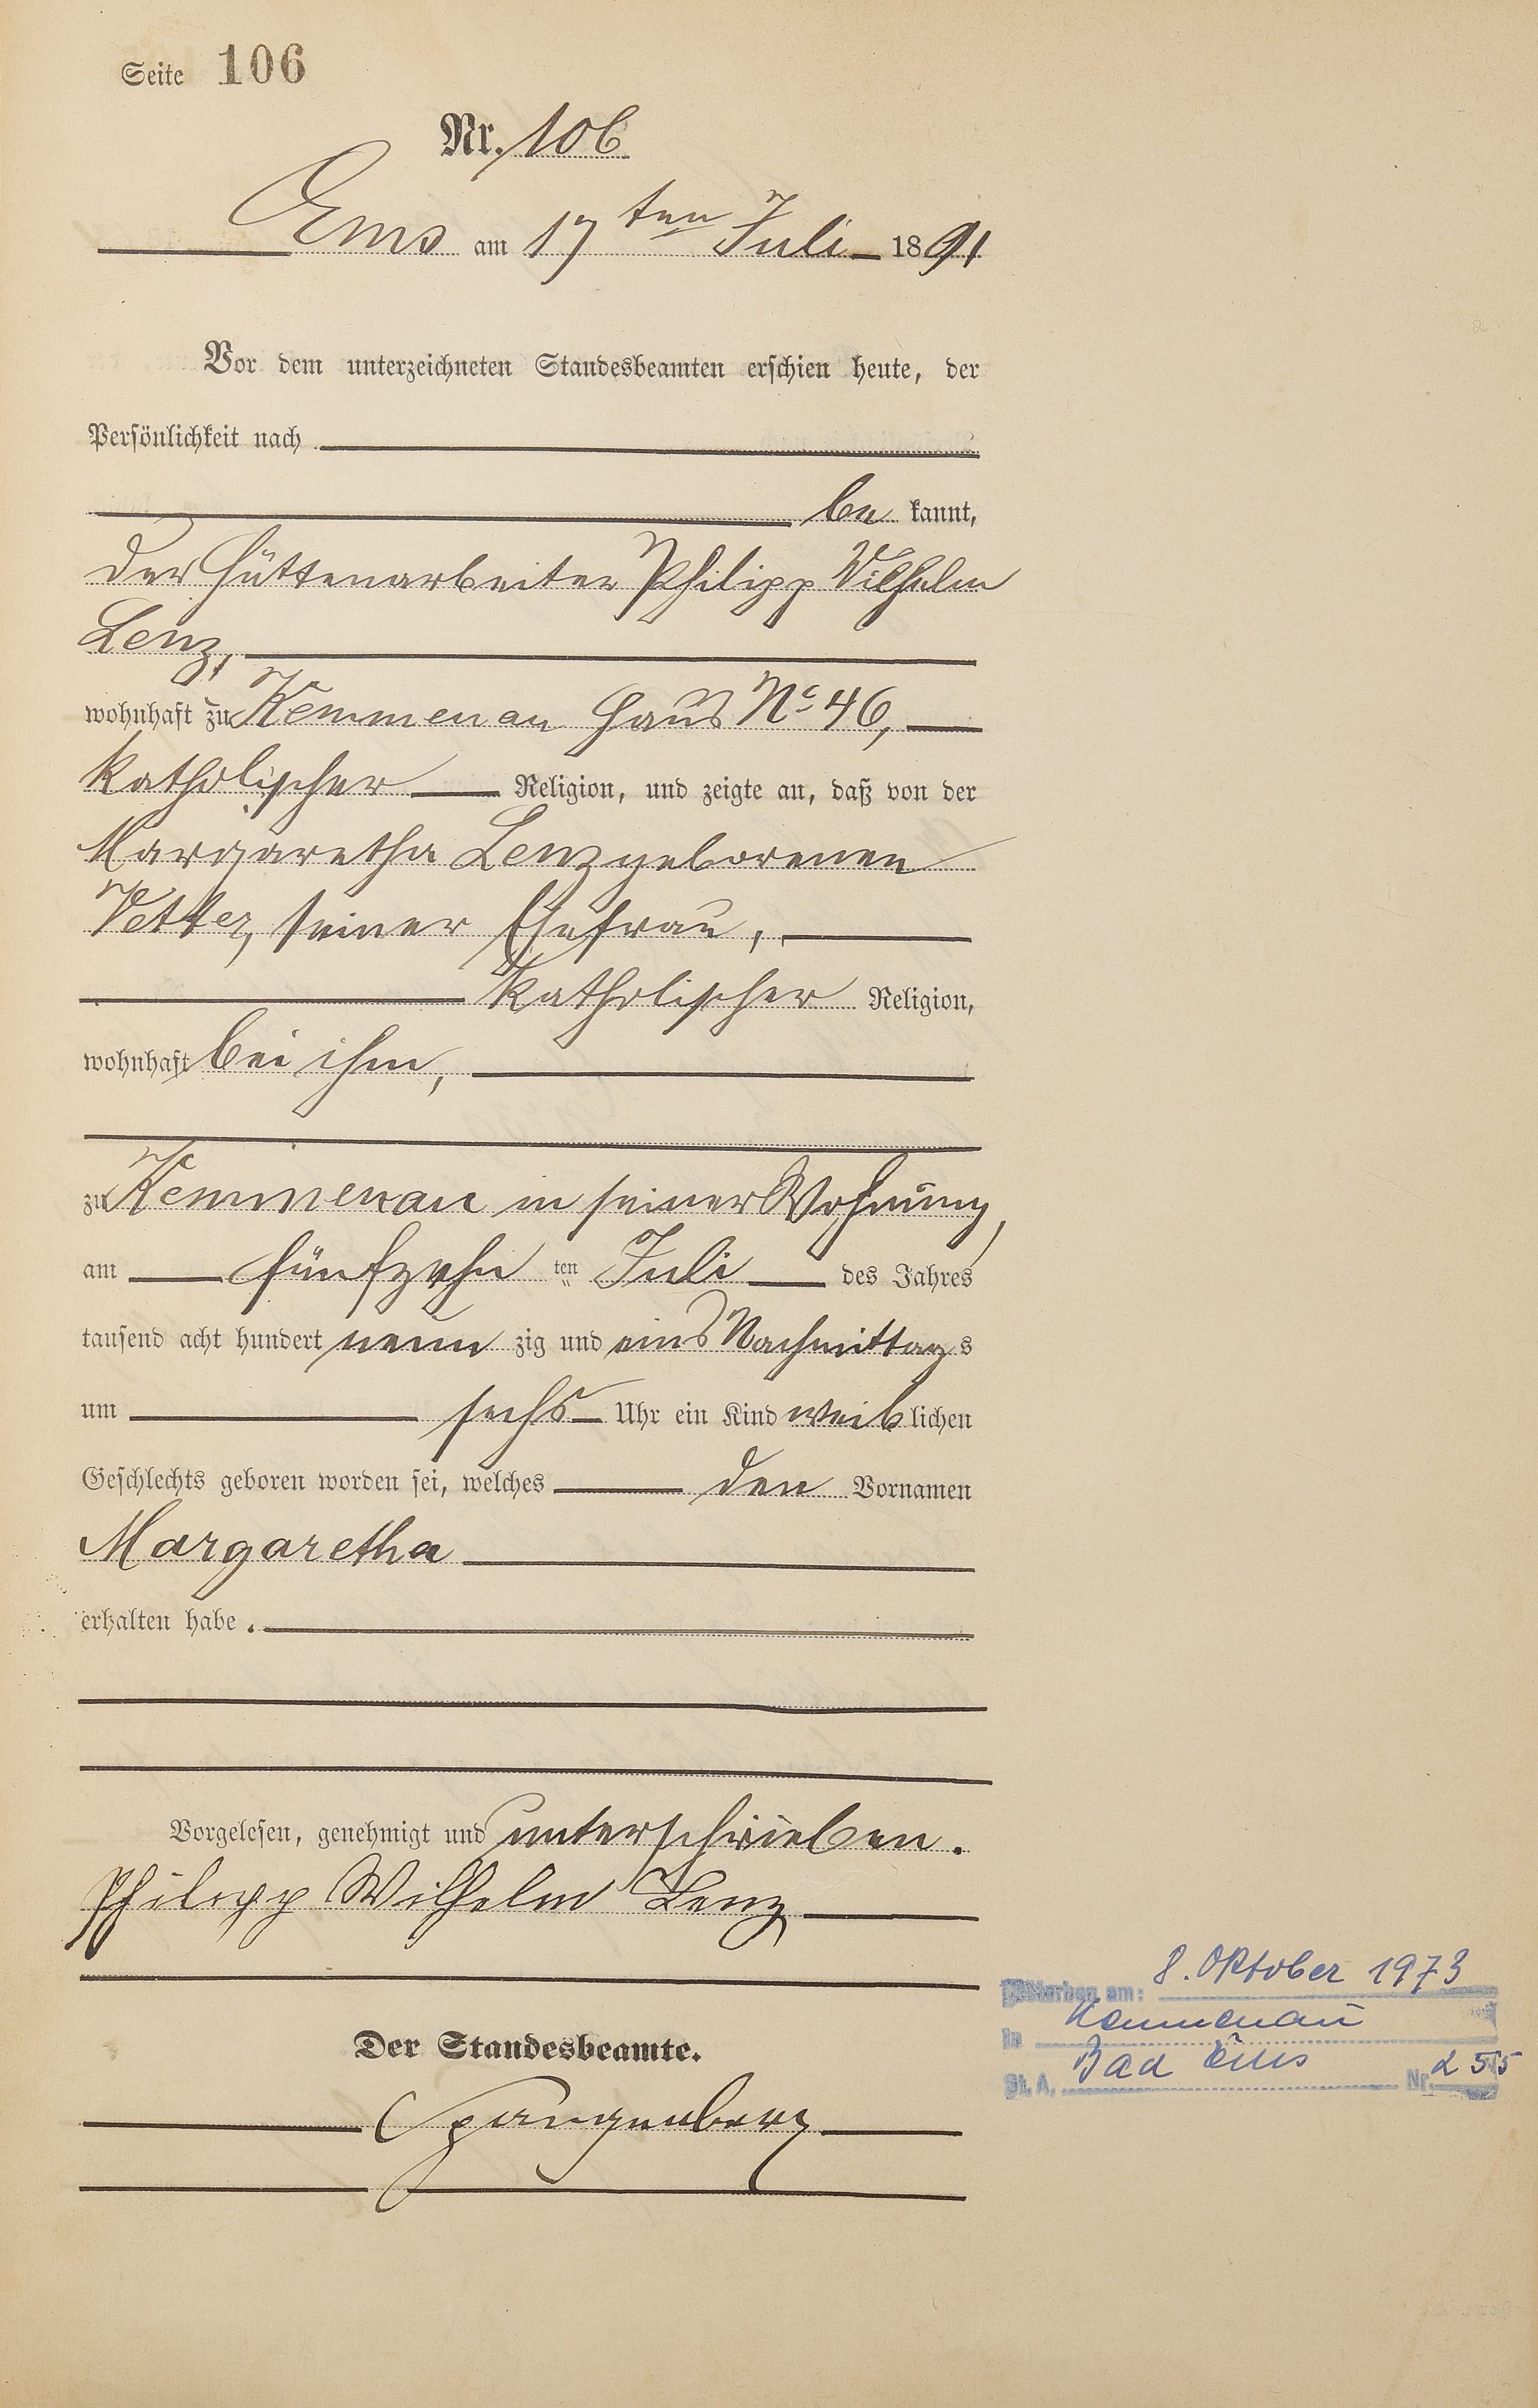 Seite 106
Nr. 106
Ems am 17ten Juli 1891
Vor dem unterzeichneten Standesbeamten erschien heute, der
Persönlichkeit nach
be kannt,
der Hüttenarbeiter Philipp Wilhelm
Lenz,
wohnhaft zu Kemmenau Haus No 46,
katholischer Religion, und zeigte an, daß von der
Margaretha Lenz geborenen
Vetter, seiner Ehefrau,
katholischer Religion,
wohnhaft bei ihm,
zu Kemmenau in seiner Wohnung,
am fünfzehn ten Juli des Jahres
tausend acht hundert neun zig und eins Nachmittags
um sechs Uhr ein Kind weiblichen
Geschlechts geboren worden sei, welches den Vornamen
Margaretha
erhalten habe.
Vorgelesen, genehmigt und unterschrieben.
Philipp Wilhelm Lenz
Der Standesbeamte.
Spangenberg
Gestorben am: 8. Oktober 1973
in Kemmenau
St. A. Bad Ems Nr. 255